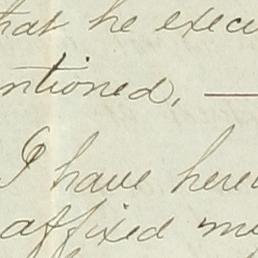 hat he execu
ntioned, —
I have here
affixed my